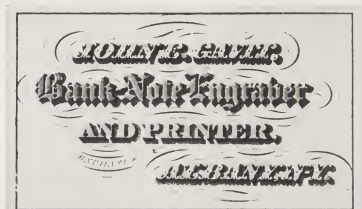 JOHN E. GAVIT,
Bank-Note Engraver
AND PRINTER,
EXCHANGE
ALBANY, N.Y.